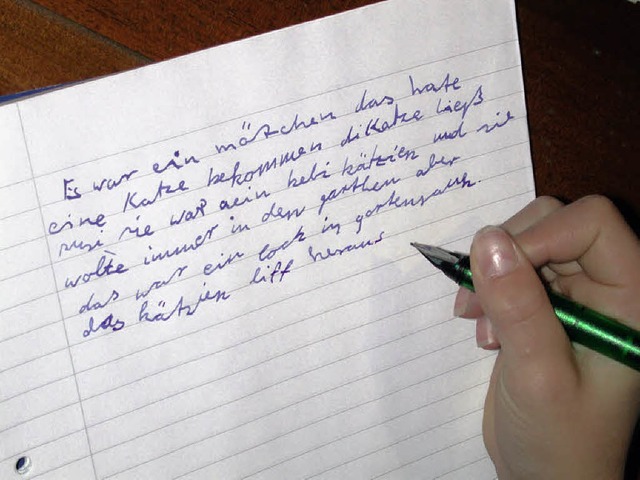 Es war ein mätchen das hate
eine Katze bekommen diKatze ließ
susi sie war aein bebi kätzien und sie
wolte immer in den garthen aber
das war ein lock in gartenzaun.
das kätzien liff heraus